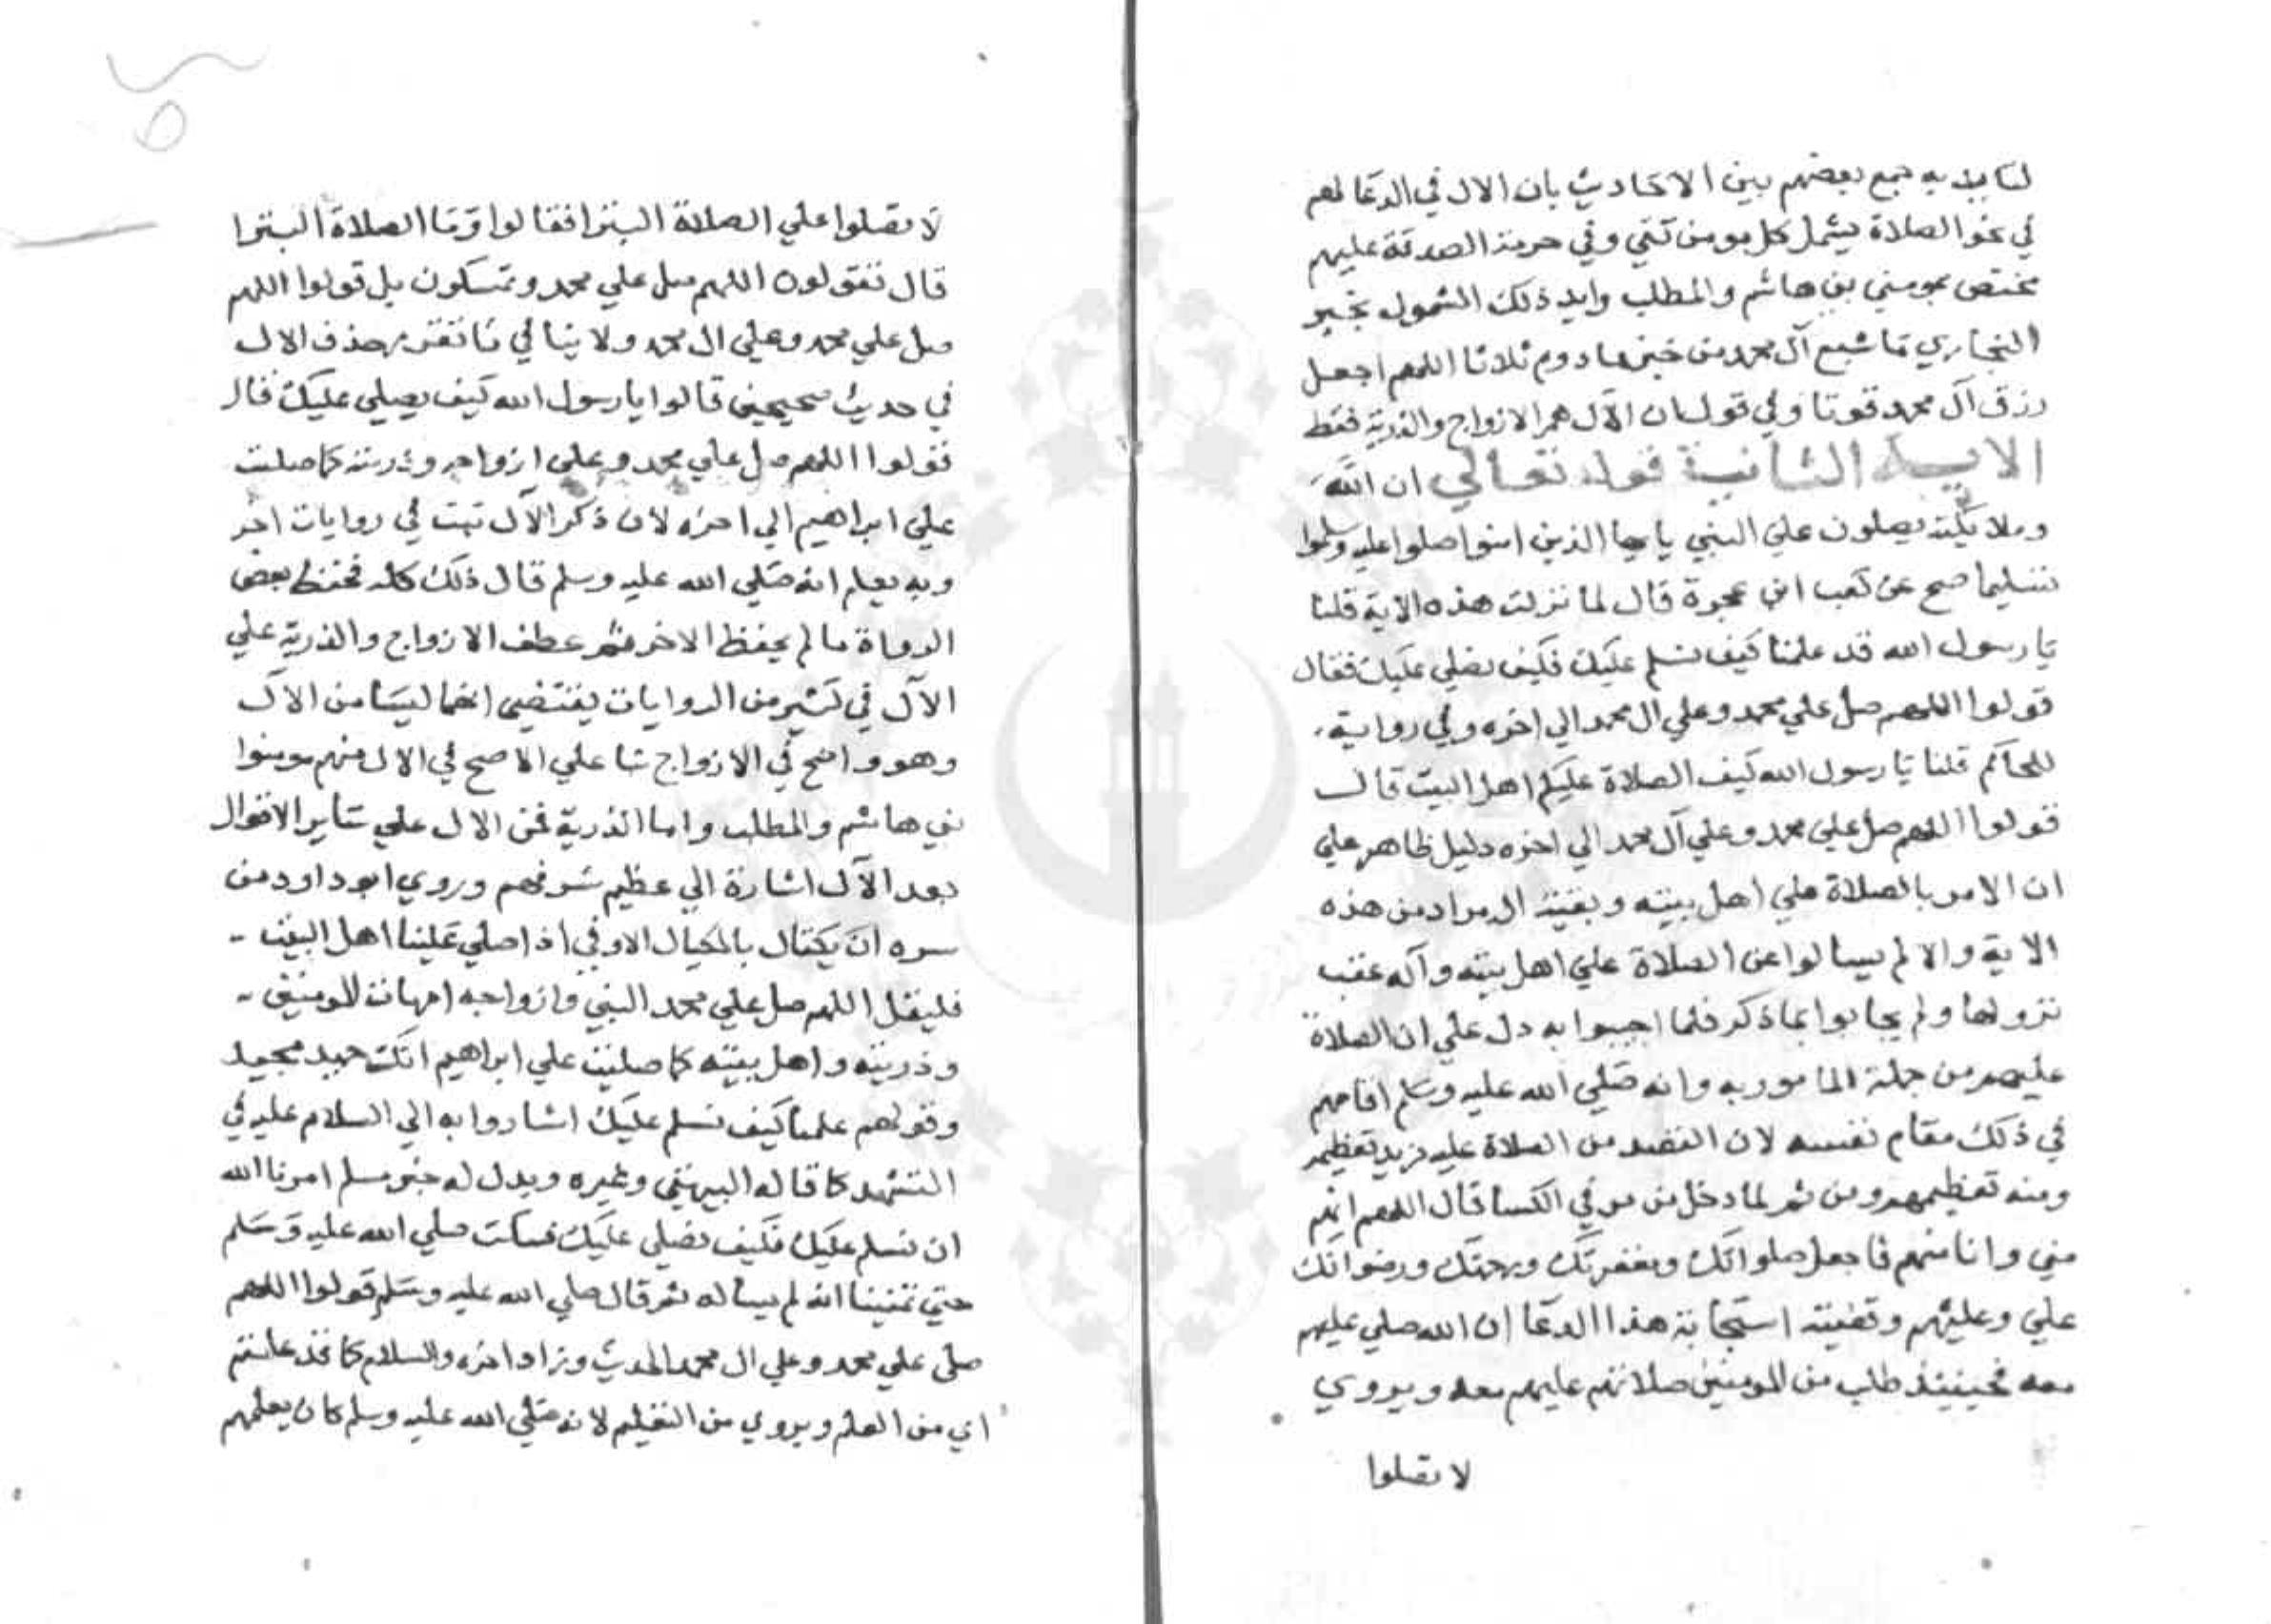 لنا ببلايه جمع بعضهم بين الاحاديث بان الال في الدعا لهم
في نحو الصلاة يشمل كل مومن تقي وفي حرمة الصدقة عليهم
مختص بمومني بني هاشم والمطلب وايد ذلك الشمول بخبر
البخاري ما شبع آل محمد من خبز مادوم ثلاثا اللهم اجعل
رزق آل محمد قوتا وفي قول ان الآل هم الازواج والذرية فقط
الاية الثانية قوله تعالي ان الله
وملائكته يصلون علي النبي يايها الذين امنوا صلوا عليه وسلموا
تسليما صح عن كعب ابن عجرة قال لما نزلت هذه الاية قلنا
يا رسول الله قد علمنا كيف نسلم عليك فكيف نصلي عليك فقال
قولوا اللهم صل علي محمد وعلي ال محمد الي اخره وفي رواية
للحاكم قلنا يا رسول الله كيف الصلاة عليكم اهل البيت قال
قولوا اللهم صل علي محمد وعلي آل محمد الي اخره دليل ظاهر علي
ان الامر بالصلاة علي اهل بيته وبقية اله مراد من هذه
الاية والا لم يسالوا عن الصلاة علي اهل بيته وآله عقب
نزولها ولم يجابوا بما ذكر فلما اجيبوا به دل علي ان الصلاة
عليهم من جملة المامور به وانه صلي الله عليه وسلم اقامهم
في ذلك مقام نفسه لان القصد من الصلاة عليه مزيد تعظيمه
ومنه تعظيمهم ومن ثم لما دخل من مر في الكسا قال اللهم انهم
مني وانا منهم فاجعل صلواتك ومغفرتك ورحمتك ورضوانك
علي وعليهم وقضية استجابة هذا الدعا ان الله صلي عليهم
معه فحينيذ طلب من المومنين صلاتهم عليهم معه ويروي
لا تصلوا
لا تصلوا علي الصلاة البترا فقالوا وما الصلاة البترا
قال تقولون اللهم صل علي محمد وتمسكون بل قولوا اللهم
صل علي محمد وعلي ال محمد ولا ينافي ما تقرر حذف الال
في حديث صحيحين قالوا يا رسول الله كيف يصلي عليك قال
قولوا اللهم صل علي محمد وعلي ازواجه وذريته كما صليت
علي ابراهيم الي اخره لان ذكر الآل ثبت في روايات اخر
وبه يعلم انه صلي الله عليه وسلم قال ذلك كله فحفظ بعض
الرواة ما لم يحفظ الاخر ثم عطف الازواج والذرية علي
الآل في كثير من الروايات يقتضي انهما ليسا من الآل
وهو واضح في الازواج بنا علي الاصح في الال منهم مومنوا
بني هاشم والمطلب واما الذرية فمن الال علي ساير الاقوال
بعد الآل اشارة الي عظيم شرفهم وروي ابو داود من
سره ان يكتال بالمكيال الاوفي اذا صلي علينا اهل البيت
فليقل اللهم صل علي محمد النبي وازواجه امهات المومنين
وذريته واهل بيته كما صليت علي ابراهيم انك حميد مجيد
وقولهم علمنا كيف نسلم عليك اشاروا به الي السلام عليه في
التشهد كما قاله البيهقي وغيره ويدل له خبر مسلم امرنا الله
ان نسلم عليك فكيف نصلي عليك فسكت صلي الله عليه وسلم
حتي تمنينا انه لم يساله ثم قال صلي الله عليه وسلم قولوا اللهم
صلي علي محمد وعلي ال محمد الحديث وزاد اخره والسلام كما قد علمتم
اي من العلم ويروي من التعليم لانه صلي الله عليه وسلم كان يعلمهم